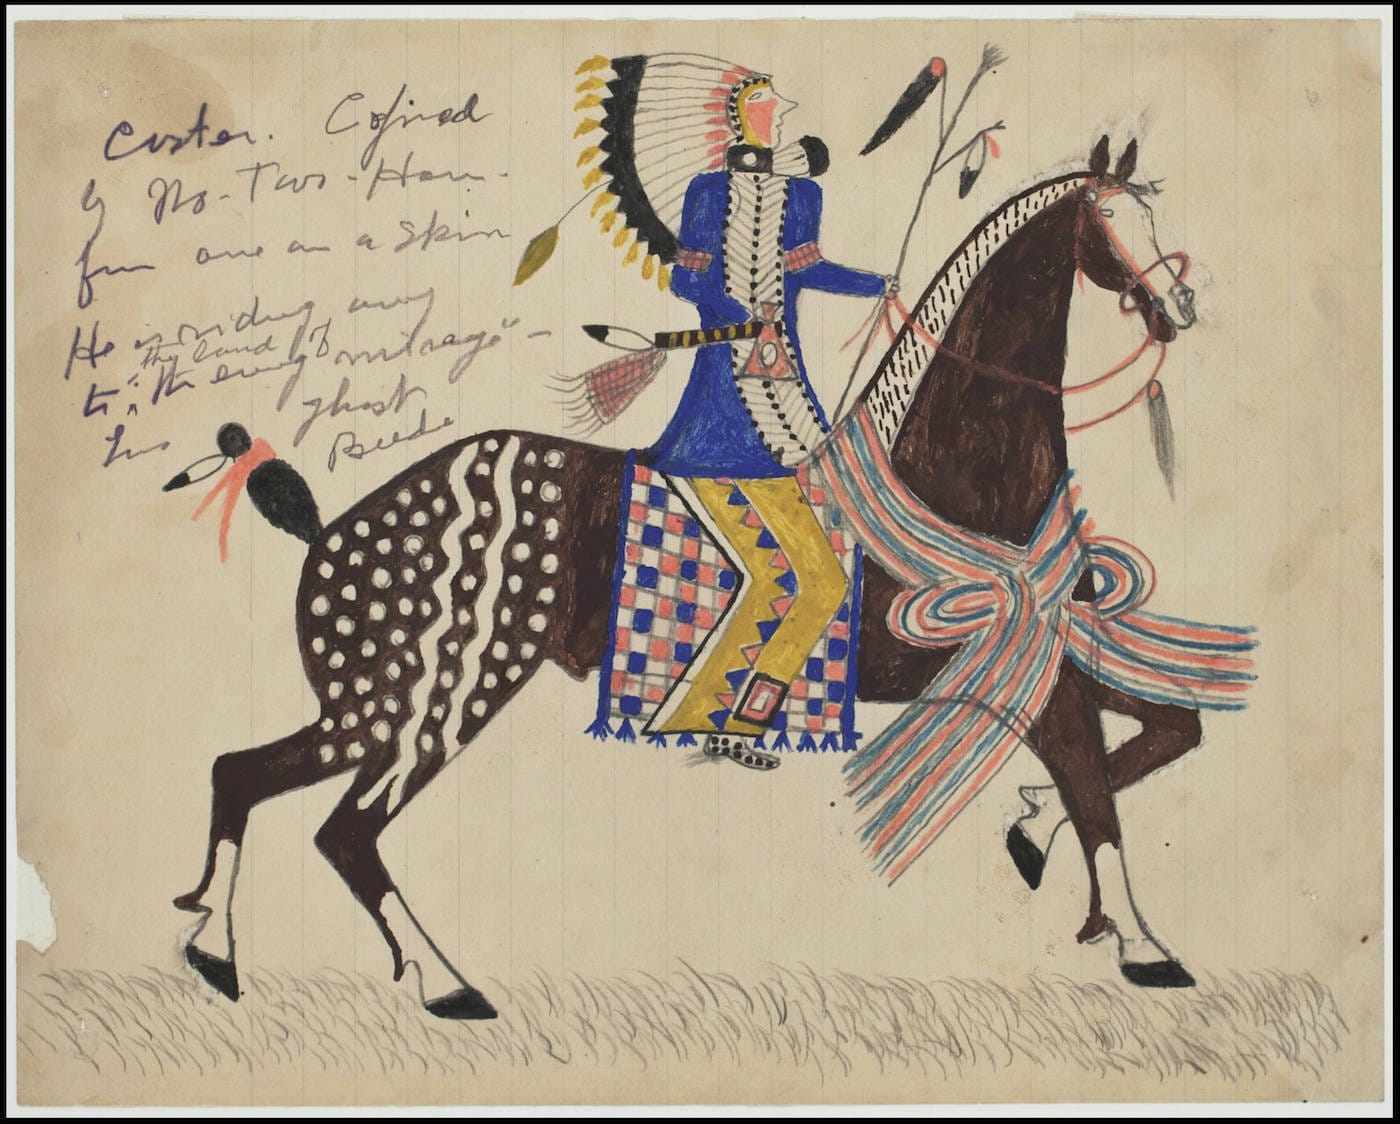 Custer. Copied
by No-Two-Horn.
from one on a Skin
He is riding away
the land of
to the every mirage" -
ghost
Beede